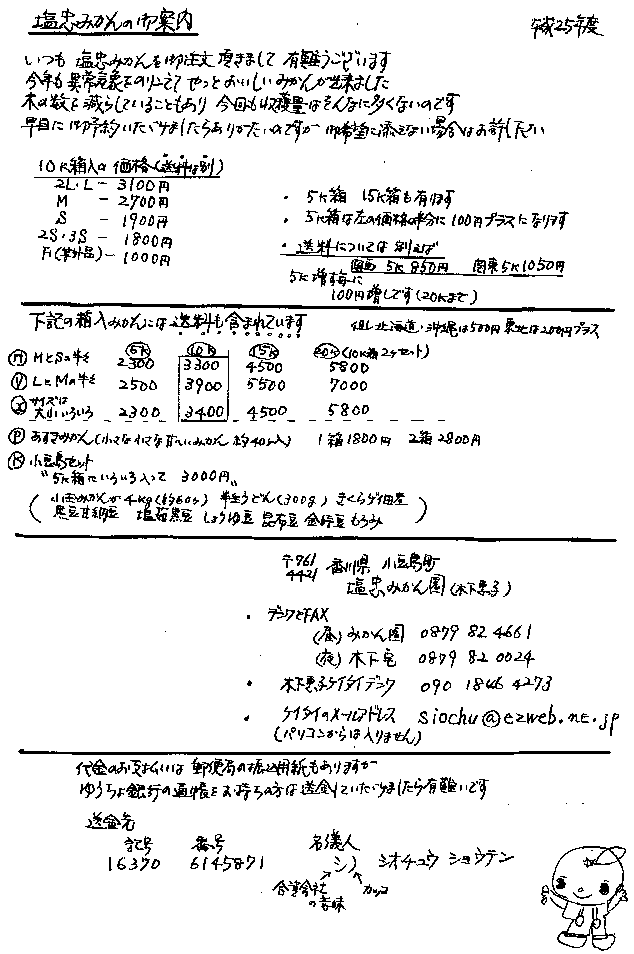 塩忠みかんの御案内
平成25年度
いつも 塩忠みかんを御注文 頂きまして 有難うございます
今年も 異常気象をのりこえて やっとおいしいみかんが出来ました
木の数を減らしていることもあり 今回も収穫量はそんなに多くないのです
早目に 御予約いただけましたらありがたいのですが 御希望に添えない場合はお許し下さい
10K箱入の 価格(送料は別)
2L・L - 3100円
M - 2700円
S - 1900円
2S・3S - 1800円
- 1000円
・ 5K箱 15K箱も有ります
・ 5K箱は左の価格の半分に100円プラスになります
・送料については
関西 5K 850円 関東5K 1050円
5K増す毎に
100円増しです(20Kまで)
下記の箱入みかんには送料も含まれています
但し北海道・沖縄は500円 東北は200円プラス
5K 10K 15K 20K(10K箱2ヶセット)
MとSの半々 2300 3300 4500 5800
LとMの半々 2500 3900 5500 7000
サイズは大小いろいろ 2300 3400 4500 5800
Ⓟ みかん(小さな小さな甘いみかん 約40ヶ入) 1箱1800円 2箱2800円
Ⓚ 小豆島セット
"5K箱にいろいろ入って 3000円"
(小玉みかんが4kg(約60ヶ) 半生うどん(300g) きくらげ佃煮
黒豆甘納豆 塩荒黒豆 しょうゆ豆 昆布豆 金時豆 もろみ)
〒761
4421
香川県 小豆島町
塩忠みかん園(木下恵子)
・ デンワとFAX
(昼)みかん園 0879 82 4661
(夜)木下宅 0879 82 0024
・ 木下恵子ケイタイデンワ 090 1846 4273
・ ケイタイのメールアドレス siochu@ezweb.ne.jp
(パソコンからは入りません)
代金のお支払いは 郵便局の振込用紙もありますが
ゆうちょ銀行の通帳をお持ちの方は送金していただけましたら有難いです
送金先
記号 番号 名義人
16370 6145871 シ) シオチュウ ショウテン
合資会社の意味 カッコ